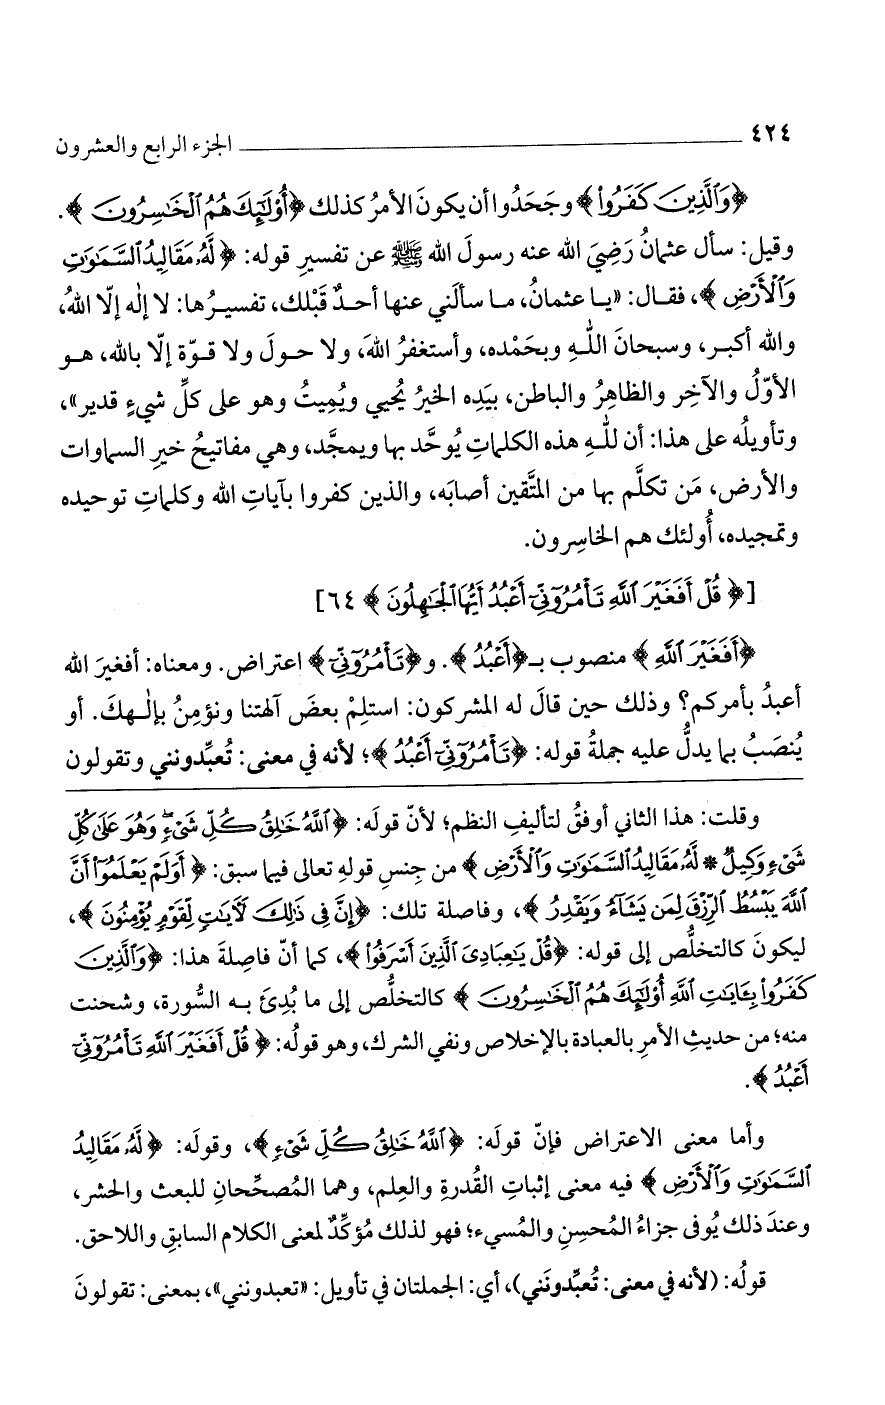 ٤٢٤ الجزء الرابع والعشرون
﴿وَالَّذِينَ كَفَرُوا﴾ وجَحَدُوا أن يكونَ الأمرُ كذلك ﴿أُوْلَٰٓئِكَ هُمُ ٱلْخَٰسِرُونَ﴾.
وقيل: سأل عثمانُ رَضِيَ الله عنه رسولَ الله ﷺ عن تفسيرِ قوله: ﴿لَهُۥ مَقَالِيدُ ٱلسَّمَٰوَٰتِ
وَٱلْأَرْضِ﴾، فقـال: «يـا عثمانُ، مـا سألَني عنها أحـدٌ قَبْلك، تفسيـرُها: لا إلٰه إلّا اللهُ،
والله أكبـر، وسبحانَ اللـهِ وبحَمْده، وأستغفرُ اللهَ، ولا حـولَ ولا قـوّة إلّا بالله، هـو
الأوّلُ والآخِر والظاهِرُ والباطن، بيَدِه الخيرُ يُحيي ويُمِيتُ وهو على كلِّ شيءٍ قدير»،
وتأويلُه على هذا: أن للـهِ هذه الكلماتِ يُوحَّد بها ويمجَّد، وهي مفاتيحُ خيرِ السماوات
والأرض، مَن تكلَّم بها من المتَّقين أصابَه، والذين كفروا بآياتِ الله وكلماتِ توحيده
وتمجيده، أُولئك هم الخاسِرون.
[﴿قُلْ أَفَغَيْرَ ٱللَّهِ تَأْمُرُوٓنِّىٓ أَعْبُدُ أَيُّهَا ٱلْجَٰهِلُونَ﴾ ٦٤]
﴿أَفَغَيْرَ ٱللَّهِ﴾ منصوب بـ﴿أَعْبُدُ﴾. و﴿تَأْمُرُوٓنِّىٓ﴾ اعتراض. ومعناه: أفغيرَ الله
أعبدُ بأمركم؟ وذلك حين قالَ له المشركون: استلِمْ بعضَ آلهتنا ونؤمِنُ بإلٰـهكَ. أو
يُنصَبُ بما يدلُّ عليه جملةُ قوله: ﴿تَأْمُرُوٓنِّىٓ أَعْبُدُ﴾؛ لأنه في معنى: تُعبِّدونني وتقولون
وقلت: هذا الثاني أوفقُ لتأليفِ النظم؛ لأنّ قولَه: ﴿ٱللَّهُ خَٰلِقُ كُلِّ شَىْءٍ وَهُوَ عَلَىٰ كُلِّ
شَىْءٍ وَكِيلٌ * لَّهُۥ مَقَالِيدُ ٱلسَّمَٰوَٰتِ وَٱلْأَرْضِ﴾ من جنسِ قولهِ تعالى فيما سبق: ﴿أَوَلَمْ يَعْلَمُوٓا۟ أَنَّ
ٱللَّهَ يَبْسُطُ ٱلرِّزْقَ لِمَن يَشَآءُ وَيَقْدِرُ﴾، وفاصلة تلك: ﴿إِنَّ فِى ذَٰلِكَ لَءَايَٰتٍ لِّقَوْمٍ يُؤْمِنُونَ﴾،
ليكونَ كالتخلُّص إلى قوله: ﴿قُلْ يَٰعِبَادِىَ ٱلَّذِينَ أَسْرَفُوا۟﴾، كما أنّ فاصِلةَ هذا: ﴿وَٱلَّذِينَ
كَفَرُوا۟ بِـَٔايَٰتِ ٱللَّهِ أُو۟لَٰٓئِكَ هُمُ ٱلْخَٰسِرُونَ﴾ كالتخلُّص إلى ما بُدِئَ بـه السُّورة، وشحنت
منه؛ من حديثِ الأمرِ بالعبادة بالإخلاص ونفي الشرك، وهو قولُه: ﴿قُلْ أَفَغَيْرَ ٱللَّهِ تَأْمُرُوٓنِّىٓ
أَعْبُدُ﴾.
وأما معنى الاعتراض فإنّ قولَه: ﴿ٱللَّهُ خَٰلِقُ كُلِّ شَىْءٍ﴾، وقولَه: ﴿لَّهُۥ مَقَالِيدُ
ٱلسَّمَٰوَٰتِ وَٱلْأَرْضِ﴾ فيه معنى إثباتِ القُدرةِ والعِلم، وهما المُصحِّحانِ للبعث والحشر،
وعندَ ذلك يُوفى جزاءُ المُحسِنِ والمُسيء؛ فهو لذلك مُؤكِّدٌ لمعنى الكلام السابقِ واللاحق.
قولُه: (لأنه في معنى: تُعبِّدونَني)، أي: الجملتان في تأويل: «تعبدونني»، بمعنى: تقولونَ